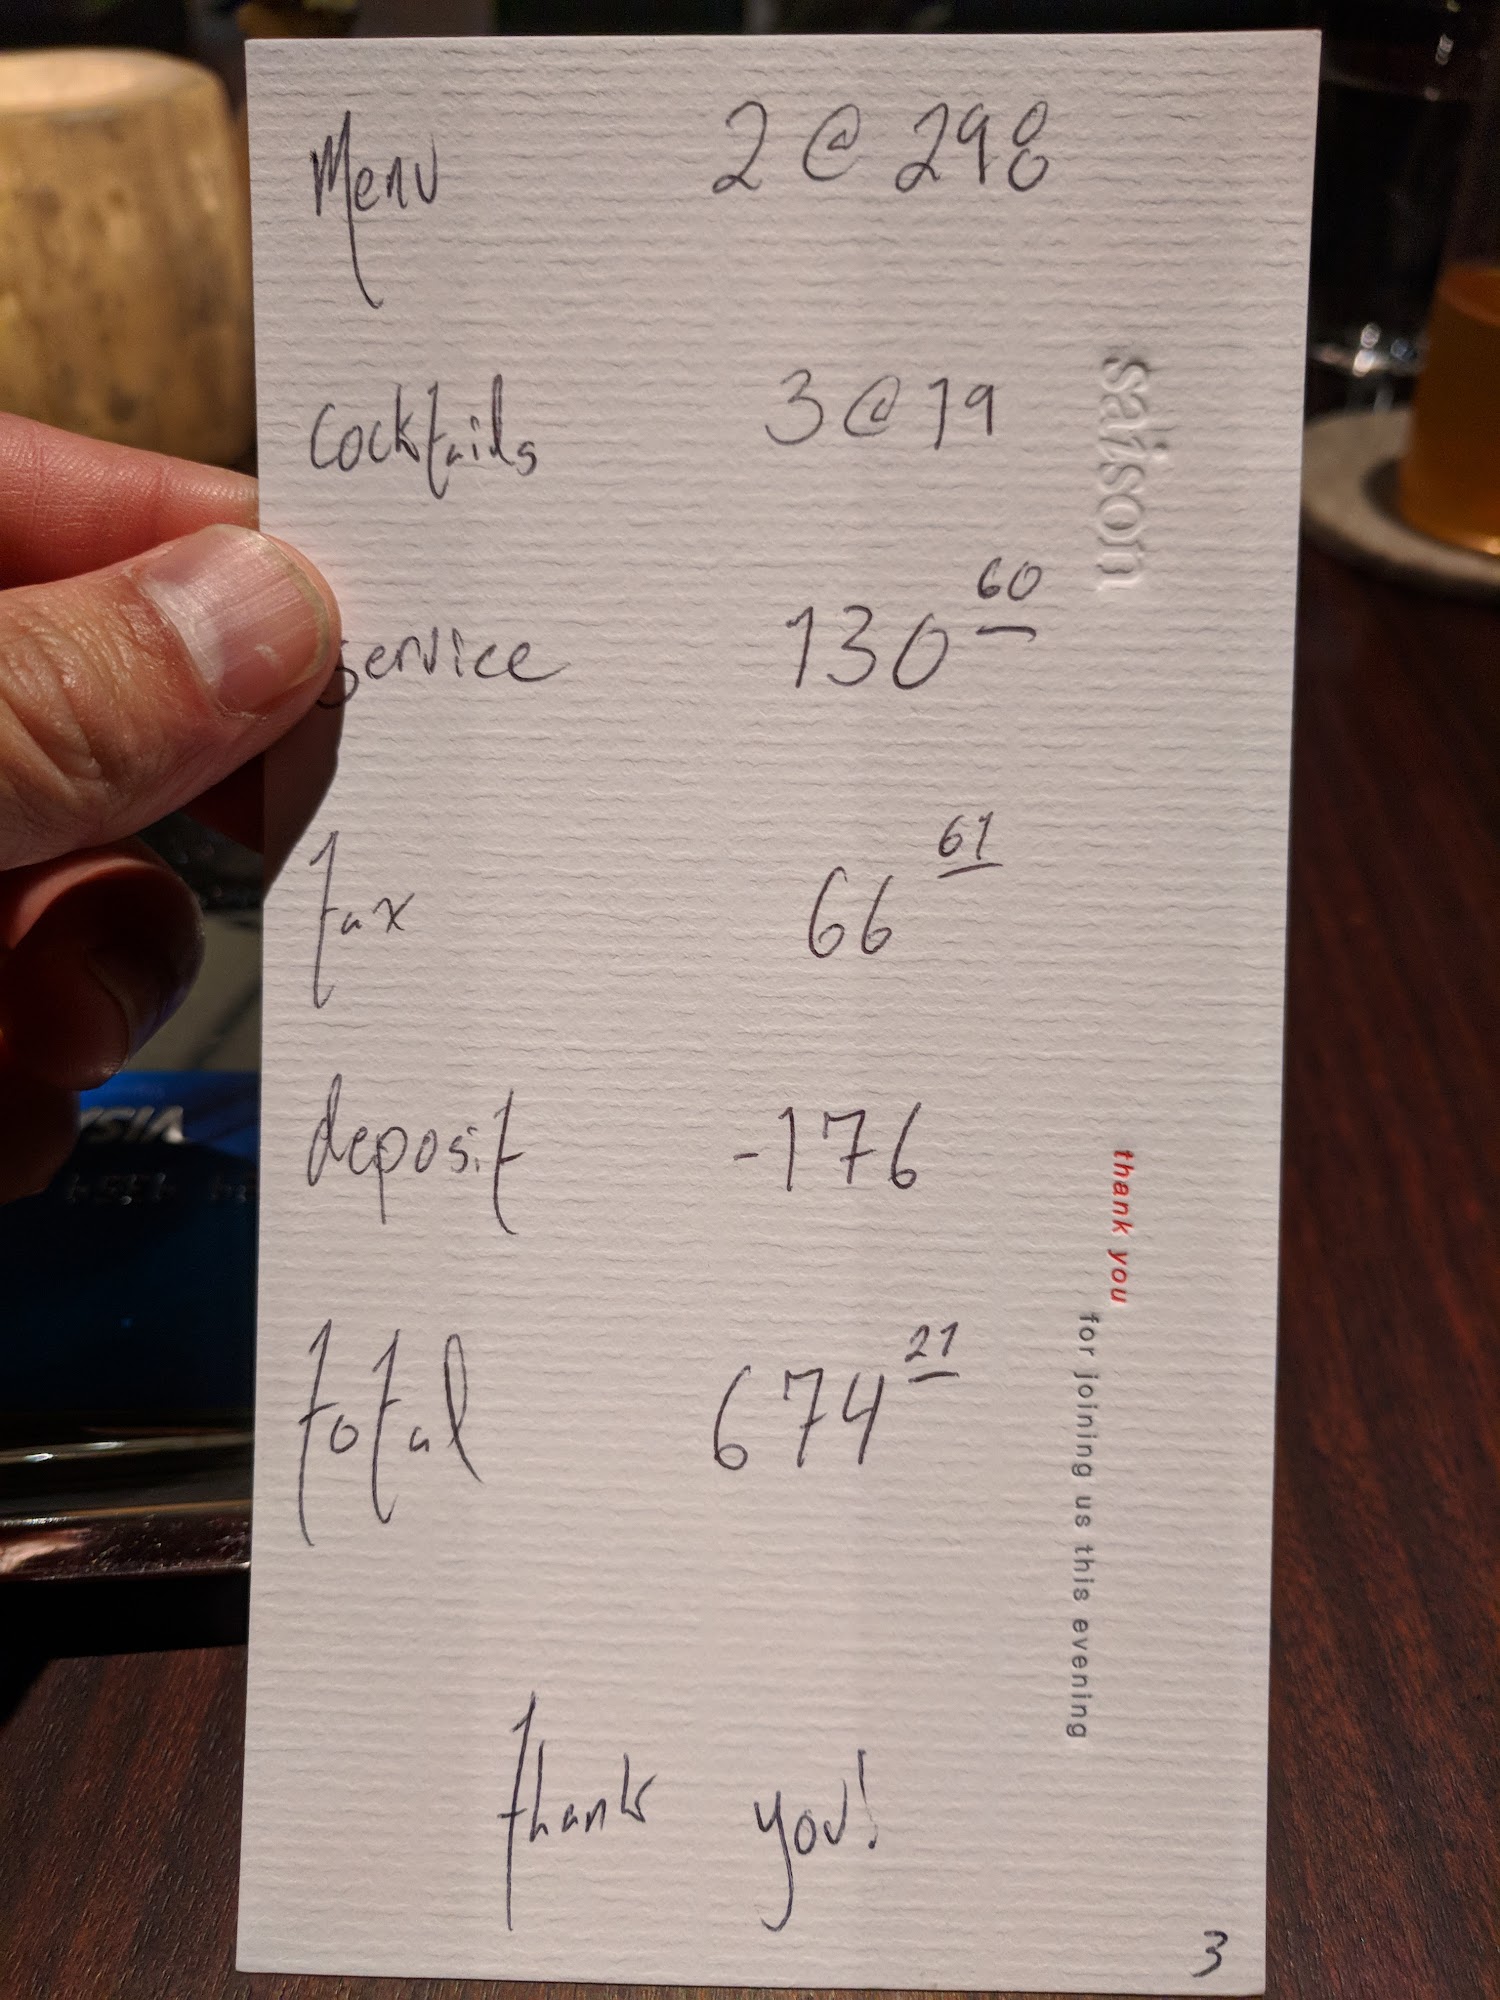 Menu 2 @ 298
Cocktails 3 @ 19
service 130 60
tax 66 61
deposit -176
total 674 21
thank you!
3
saison
thank you
for joining us this evening
VISA